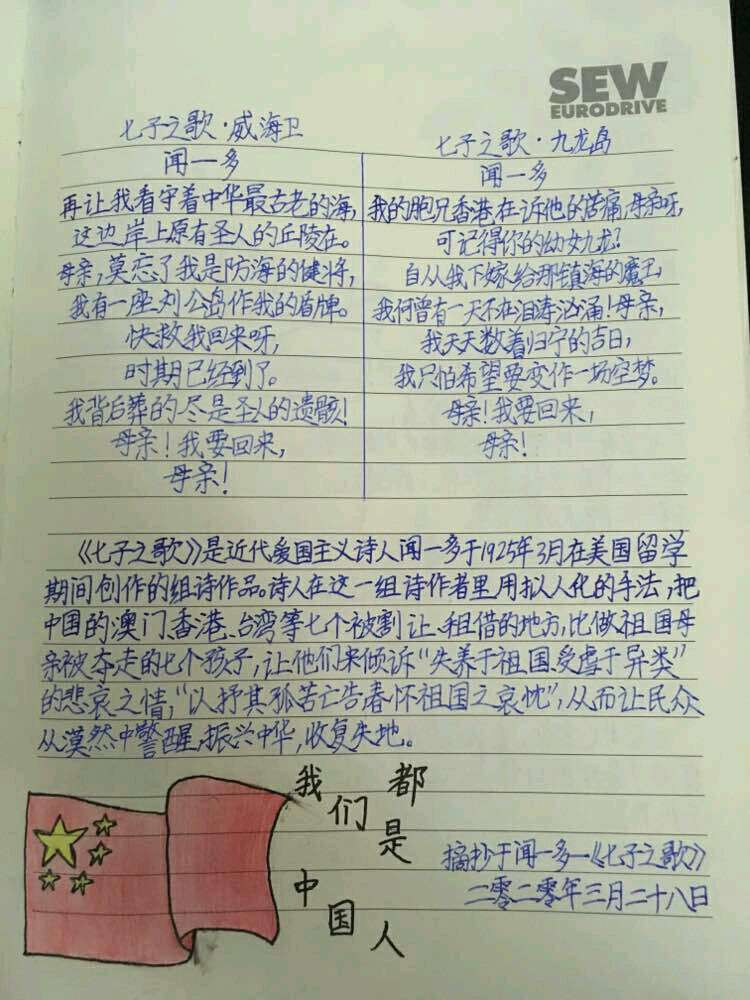 SEW
EURODRIVE
七子之歌·威海卫
闻一多
再让我看守着中华最古老的海,
这边岸上原有圣人的丘陵在。
母亲,莫忘了我是防海的健将,
我有一座刘公岛作我的盾牌。
快救我回来呀,
时期已经到了。
我背后葬的尽是圣人的遗骸!
母亲!我要回来,
母亲!
七子之歌·九龙岛
闻一多
我的胞兄香港在诉他的苦痛,母亲呀,
可记得你的幼女九龙?
自从我下嫁给那镇海的魔王,
我何曾有一天不在泪涛汹涌!母亲,
我天天数着归宁的吉日,
我只怕希望要变作一场空梦。
母亲!我要回来,
母亲!
《七子之歌》是近代爱国主义诗人闻一多于1925年3月在美国留学
期间创作的组诗作品。诗人在这一组诗作者里用拟人化的手法,把
中国的澳门、香港、台湾等七个被割让、租借的地方,比做祖国母
亲被夺走的七个孩子,让他们来倾诉“失养于祖国,受虐于异类”
的悲哀之情,“以抒其孤苦亡告,眷怀祖国之哀忱”,从而让民众
从漠然中警醒,振兴中华,收复失地。
我们都是中国人
摘抄于闻一多《七子之歌》
二零二零年三月二十八日